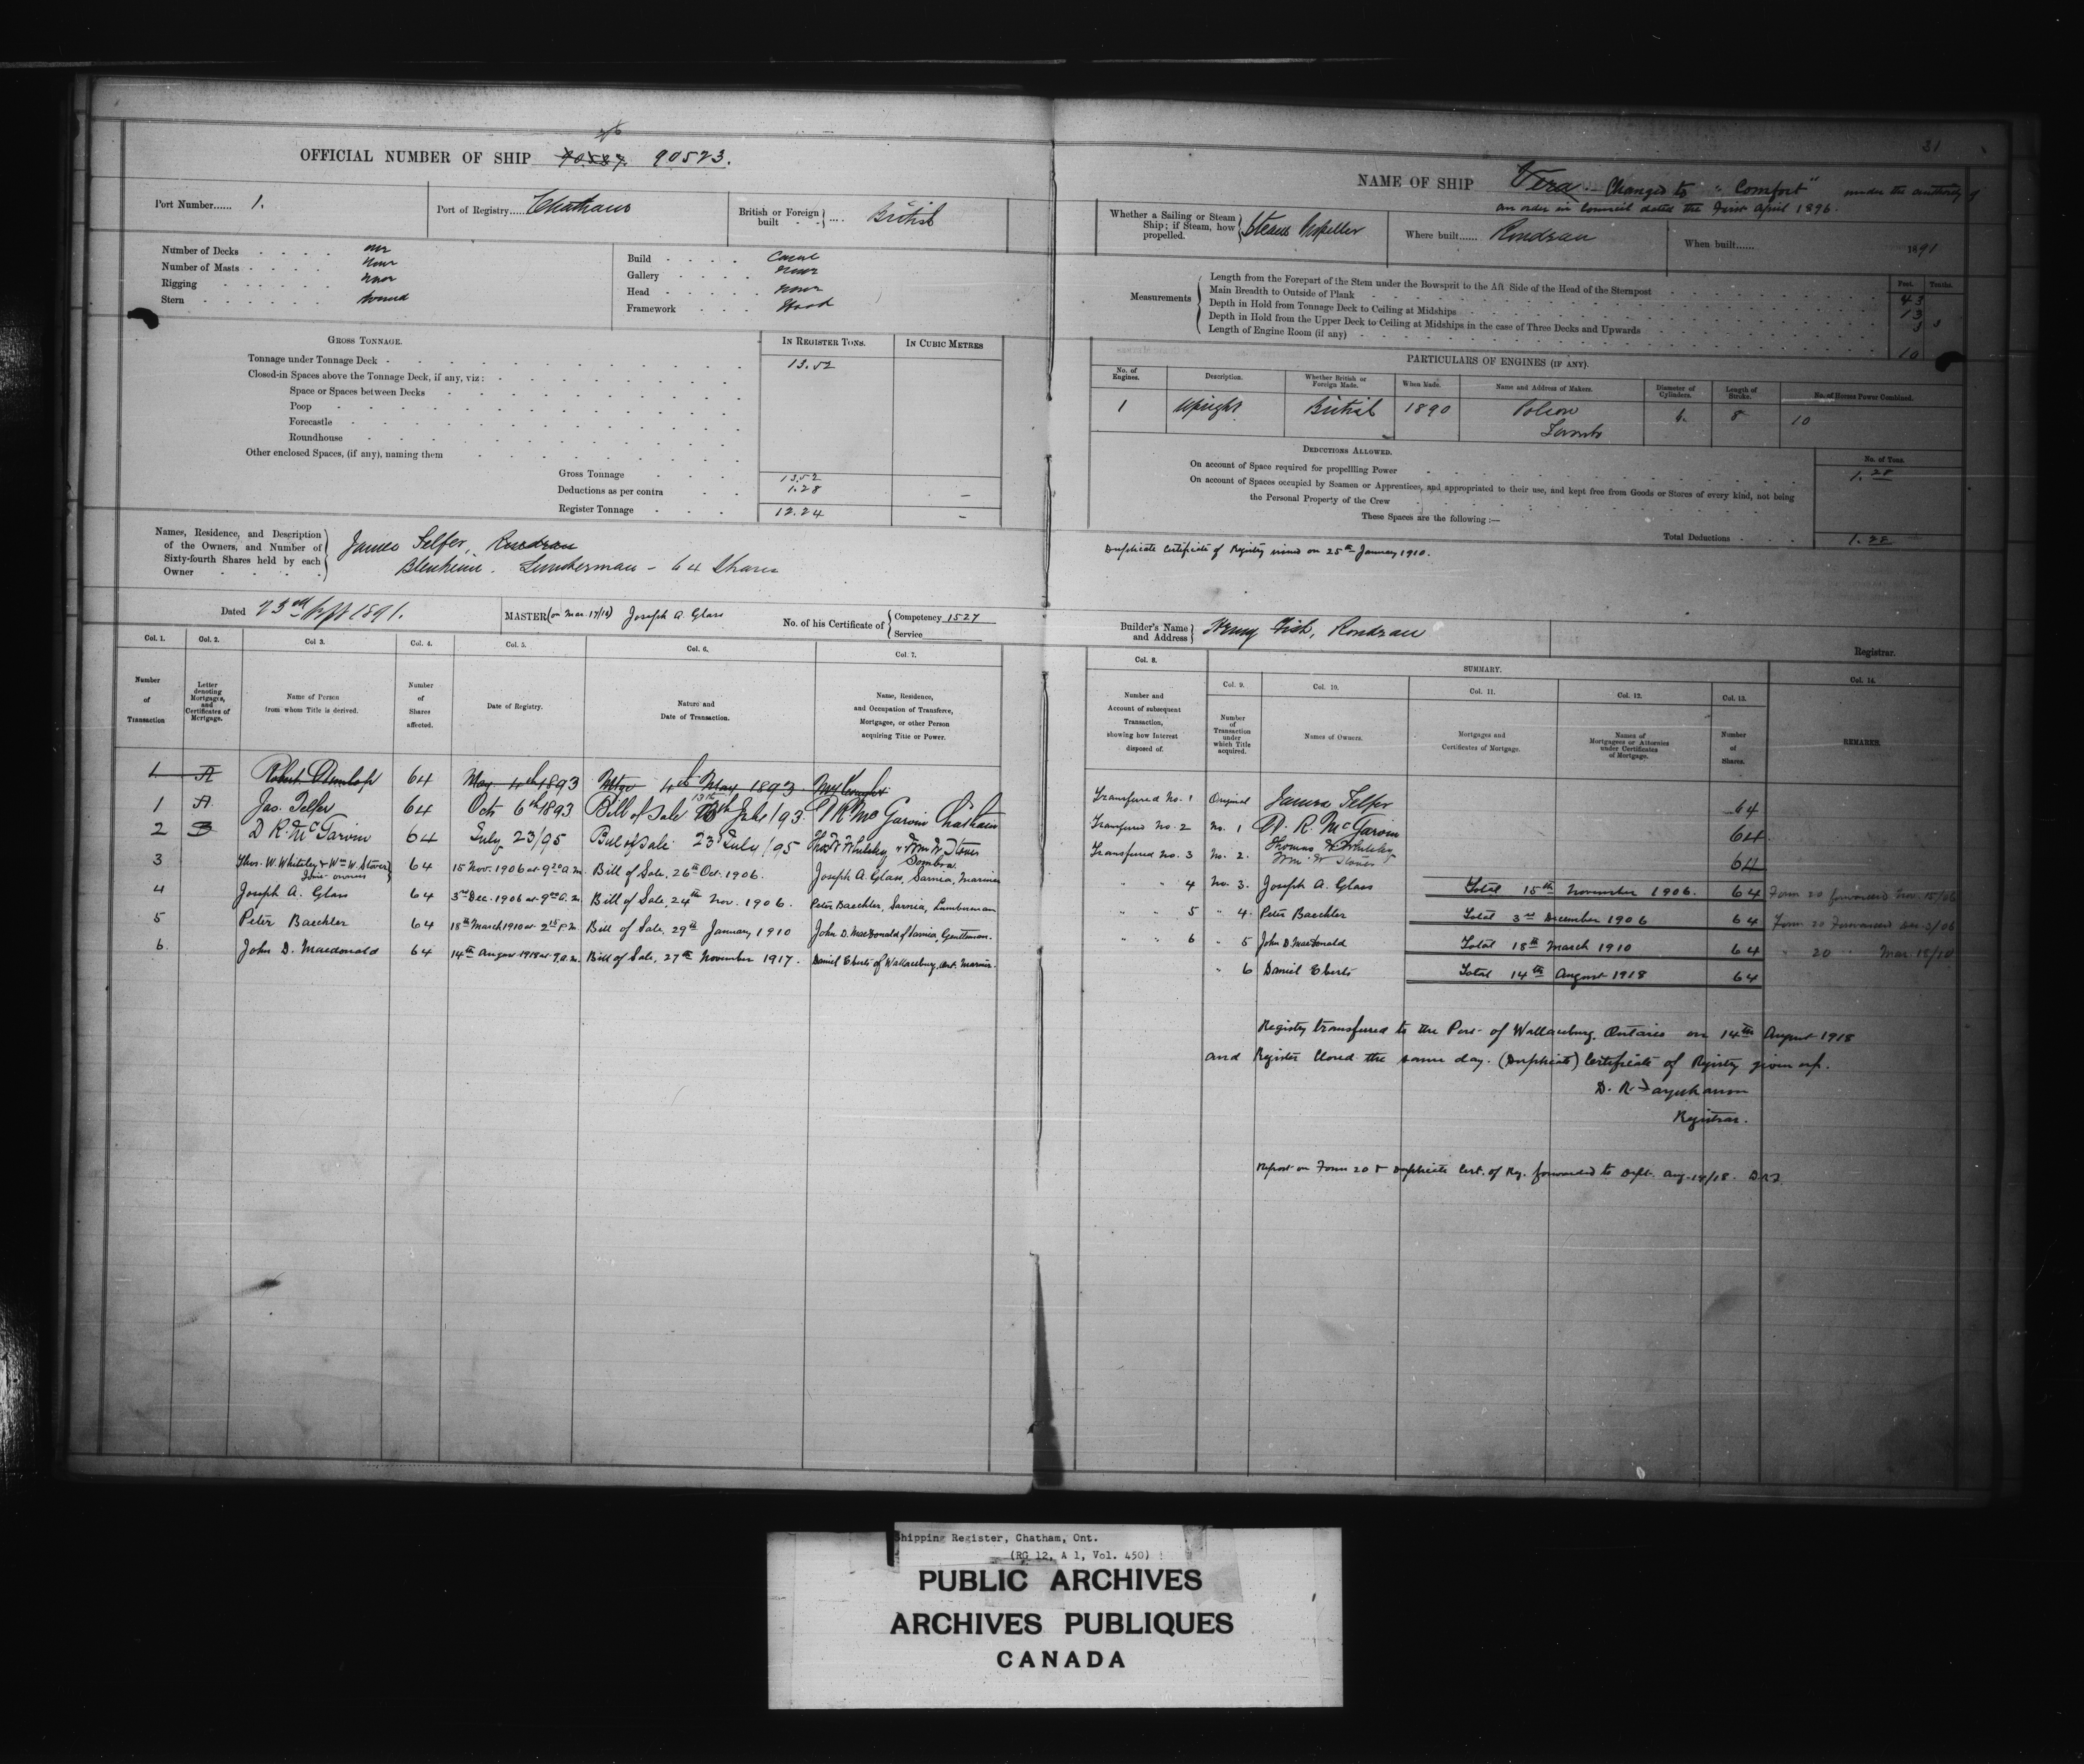 31
OFFICIAL NUMBER OF SHIP 90587. 90523.
Port Number...... 1.
Port of Registry..... Chatham
British or Foreign built .... British
Number of Decks one
Number of Masts None
Rigging None
Stern Round
Build Carvel
Gallery None
Head None
Framework Wood
GROSS TONNAGE.
IN REGISTER TONS.
IN CUBIC METRES
Tonnage under Tonnage Deck 13.52
Closed-in Spaces above the Tonnage Deck, if any, viz:
Space or Spaces between Decks
Poop
Forecastle
Roundhouse
Other enclosed Spaces, (if any), naming them
Gross Tonnage 13.52
Deductions as per contra 1.28 —
Register Tonnage 12.24 —
Names, Residence, and Description of the Owners, and Number of Sixty-fourth Shares held by each Owner
James Telfer, Rondeau
Blenheim. Lumberman - 64 Shares
Dated 23rd Sept 1891.
MASTER (on Mar. 17/10) Joseph A. Glass
No. of his Certificate of Competency 1527
Service
Col. 1. Col. 2. Col 3. Col. 4. Col. 5. Col. 6. Col. 7.
Number of Transaction
Letter denoting Mortgages, and Certificates of Mortgage.
Name of Person from whom Title is derived.
Number of Shares affected.
Date of Registry.
Nature and Date of Transaction.
Name, Residence, and Occupation of Transferee, Mortgagee, or other Person acquiring Title or Power.
1 A Robert Dunlop 64 May 4th 1893 Mtge 4th May 1893
1 A Jas. Telfer 64 Oct 6th 1893 Bill of Sale 13th July /93 D R McGarvin Chatham
2 B D R. McGarvin 64 July 23/95 Bill of Sale 23d July /95 Thos W Whiteley & Wm W Stover Sombra
3 Thos. W. Whiteley & Wm W. Stover Joint owners 64 15 Nov. 1906 at 9.20 a.m. Bill of Sale, 26th Oct. 1906. Joseph A. Glass, Sarnia, Mariner
4 Joseph A. Glass 64 3rd Dec. 1906 at 9.00 a.m Bill of Sale, 24th Nov. 1906. Peter Baechler, Sarnia, Lumberman
5 Peter Baechler 64 18th March 1910 at 2.15 P.M. Bill of Sale, 29th January 1910 John D. MacDonald of Sarnia, Gentleman.
6. John D. Macdonald 64 14th August 1918 at 9. a.m. Bill of Sale, 27th November 1917. Daniel Eberts of Wallaceburg, Ont. Mariner.
NAME OF SHIP Vera. Changed to "Comfort" under the authority of
an order in Council dated the First April 1896.
Whether a Sailing or Steam Ship; if Steam, how propelled. Steam Propeller
Where built...... Rondeau
When built...... 1891
Measurements
Feet. Tenths.
Length from the Forepart of the Stem under the Bowsprit to the Aft Side of the Head of the Sternpost 43
Main Breadth to Outside of Plank 13
Depth in Hold from Tonnage Deck to Ceiling at Midships 3 3
Depth in Hold from the Upper Deck to Ceiling at Midships in the case of Three Decks and Upwards
Length of Engine Room (if any) 10
PARTICULARS OF ENGINES (IF ANY).
No. of Engines. Description. Whether British or Foreign Made. When Made. Name and Address of Makers. Diameter of Cylinders. Length of Stroke. No. of Horses Power Combined.
1 Upright British 1890 Polson Toronto 6. 8 10
DEDUCTIONS ALLOWED.
No. of Tons.
On account of Space required for propelling Power 1.28
On account of Spaces occupied by Seamen or Apprentices, and appropriated to their use, and kept free from Goods or Stores of every kind, not being
the Personal Property of the Crew
These Spaces are the following :—
Total Deductions 1.28
Duplicate Certificate of Registry issued on 25th January 1910.
Builder's Name and Address Henry Fish, Rondeau
Registrar.
Col. 8. SUMMARY. Col. 14.
Col. 9. Col. 10. Col. 11. Col. 12. Col. 13.
Number and Account of subsequent Transaction, showing how Interest disposed of.
Number of Transaction under which Title acquired.
Names of Owners.
Mortgages and Certificates of Mortgage.
Names of Mortgagees or Attornies under Certificates of Mortgage.
Number of Shares.
REMARKS.
Transferred No. 1 Original James Telfer 64
Transferred No. 2 No. 1 D. R. McGarvin 64
Transferred No. 3 No. 2. Thomas W Whiteley & Wm. W Stover 64
" " 4 No. 3. Joseph A. Glass Total 15th November 1906. 64 Form 20 forwarded Nov. 15/06
" " 5 " 4. Peter Baechler Total 3rd December 1906 64 Form 20 Forwarded Dec 3/06
" " 6 " 5 John D MacDonald Total 18th March 1910 64 " 20 " Mar 18/10
" 6 Daniel Eberts Total 14th August 1918 64
Registry transferred to the Port of Wallaceburg, Ontario on 14th August 1918
and Register Closed the same day. (Duplicate) Certificate of Registry given up.
Registrar.
Report on Form 20 & Duplicate Cert. of Reg. forwarded to Dept. Aug. 14/18.
Shipping Register, Chatham, Ont.
(RG 12, A 1, Vol. 450)
PUBLIC ARCHIVES
ARCHIVES PUBLIQUES
CANADA